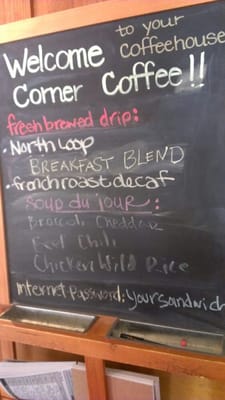 Welcome to your
coffeehouse
Corner Coffee!!
fresh brewed drip:
• North Loop
BREAKFAST BLEND
• french roast decaf
Soup du jour:
Broccoli Cheddar
Beef Chili
Chicken Wild Rice
Internet Password: Yoursandwich